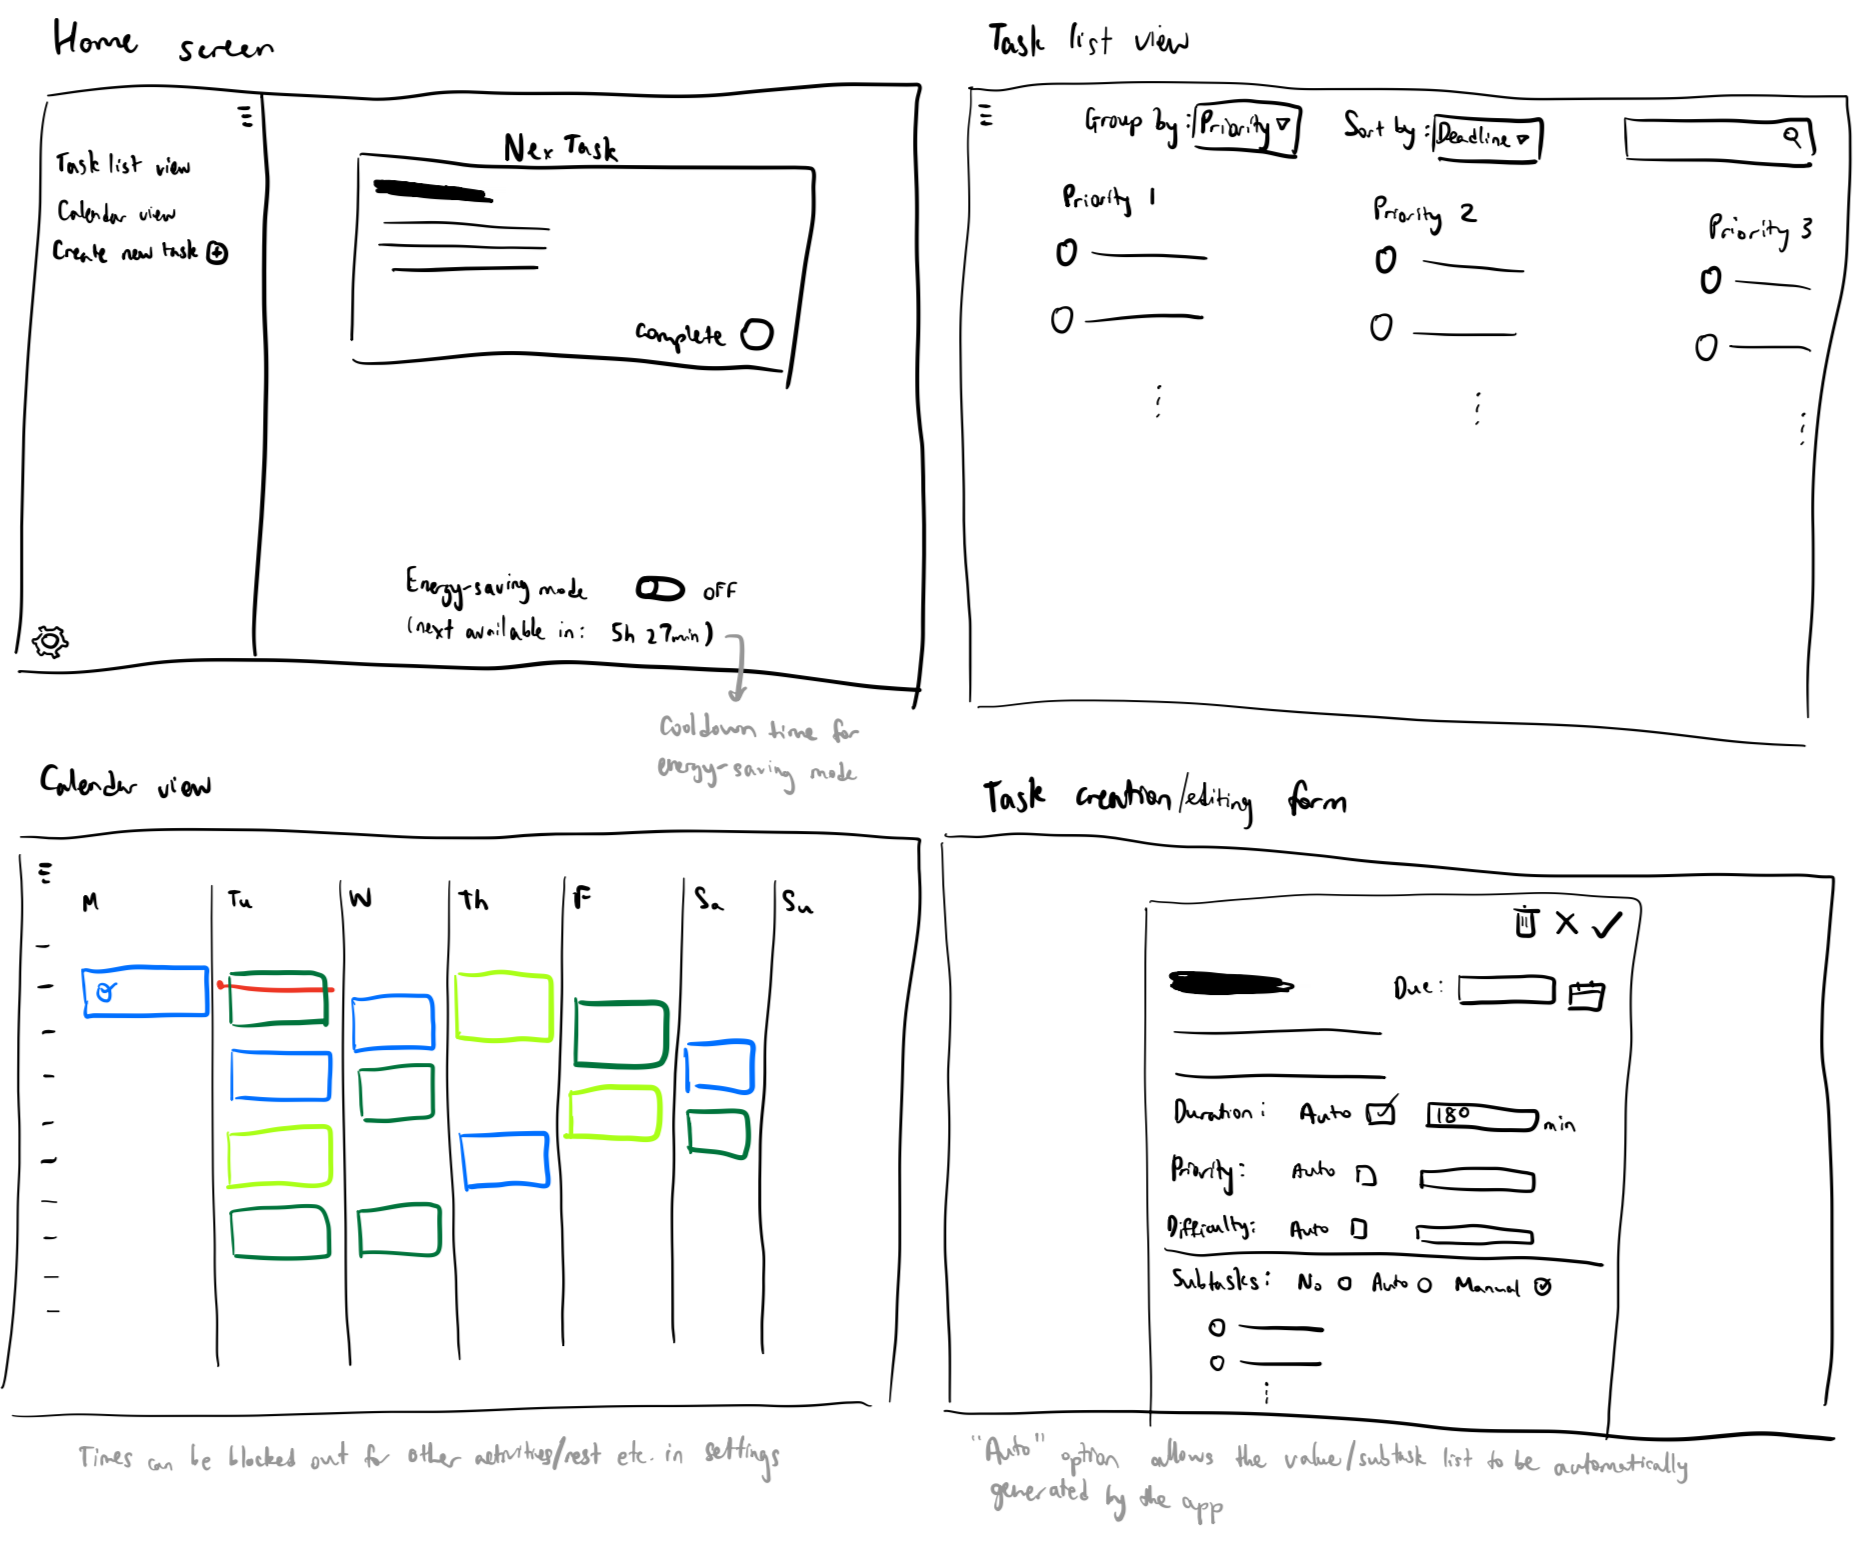 Home screen
Task list view
Calendar view
Create new task
Nex Task
Complete
Energy-saving mode OFF
(next available in: 5h 27min)
Cooldown time for
energy-saving mode
Task list view
Group by: Priority
Sort by: Deadline
Priority 1
Priority 2
Priority 3
Calendar view
M Tu W Th F Sa Su
Times can be blocked out for other activities/rest etc. in settings
Task creation/editing form
Due:
Duration: Auto 180 min
Priority: Auto
Difficulty: Auto
Subtasks: No Auto Manual
"Auto" option allows the value/subtask list to be automatically
generated by the app